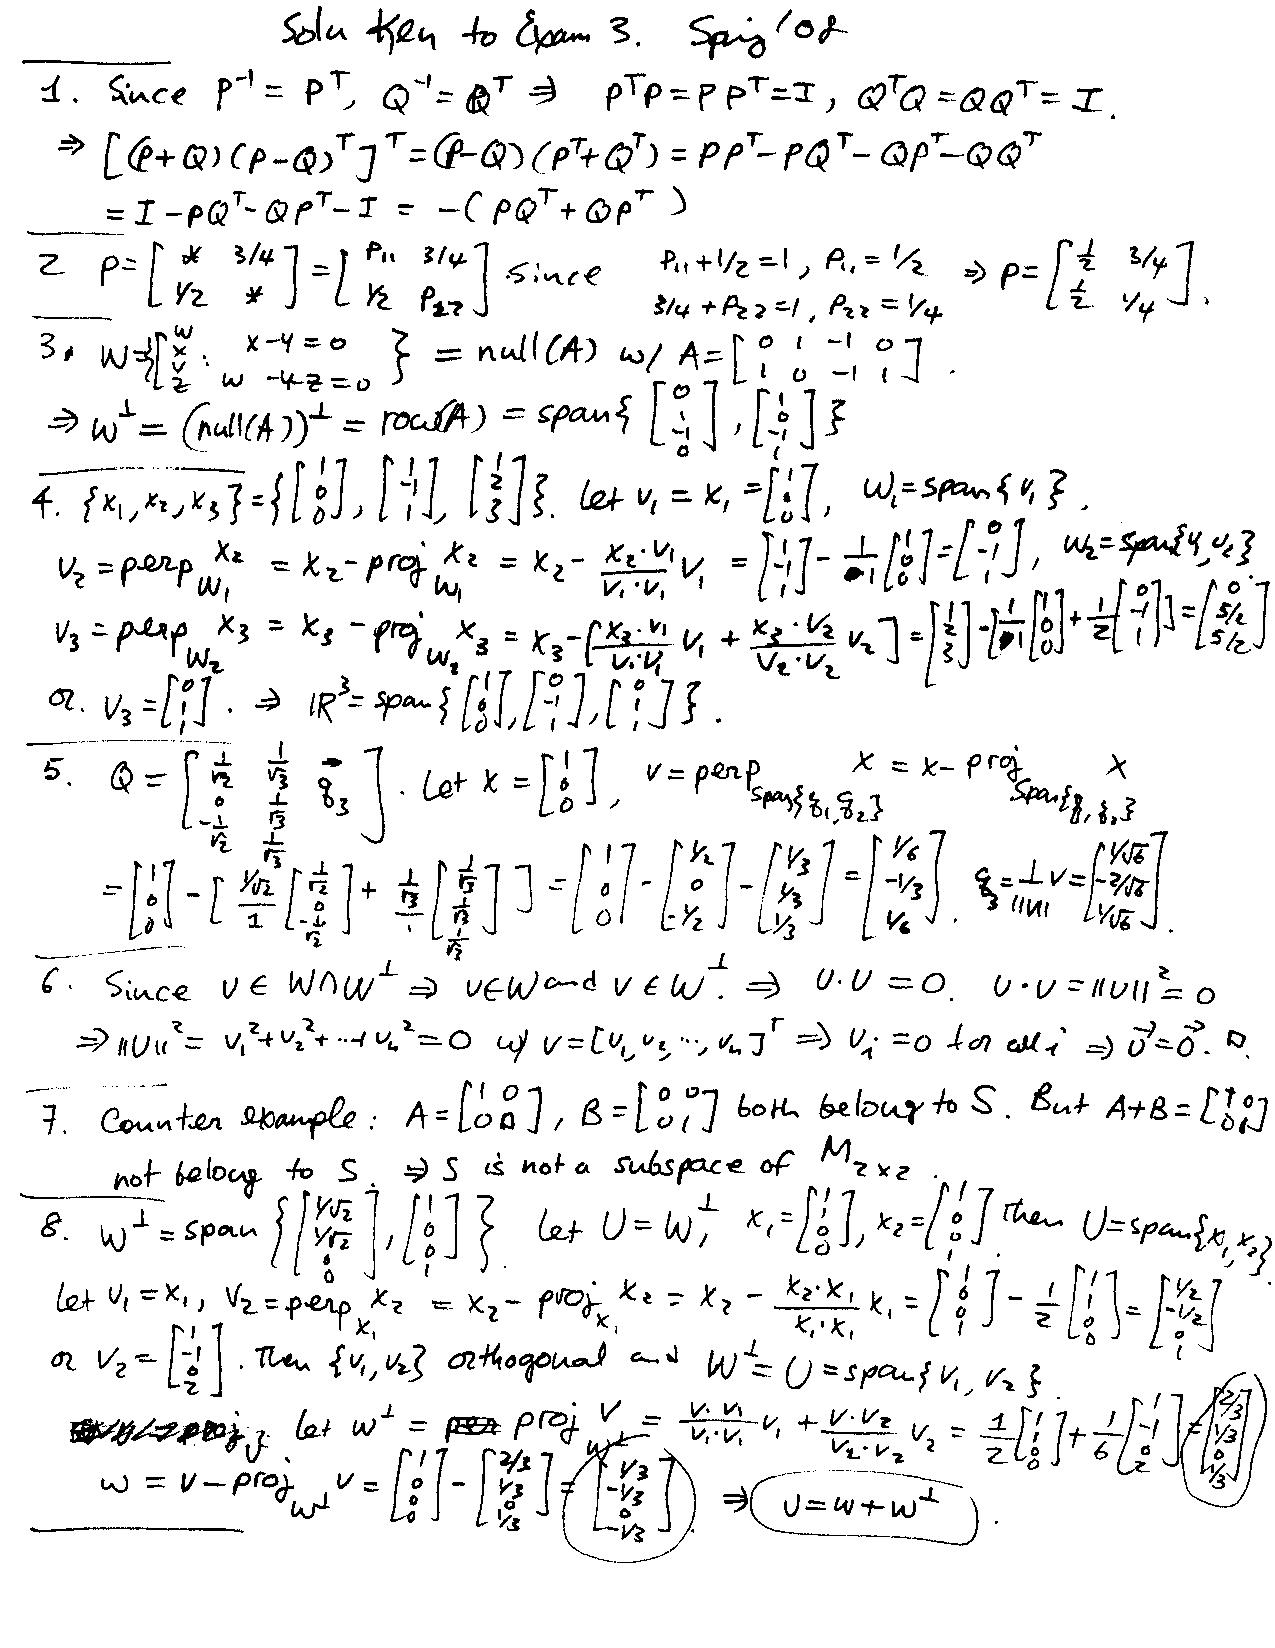 Soln Key to Exam 3. Spring '08
1. Since P⁻¹ = Pᵀ, Q⁻¹ = Qᵀ ⇒ PᵀP = PPᵀ = I, QᵀQ = QQᵀ = I.
⇒ [(P+Q)(P-Q)ᵀ]ᵀ = (P-Q)(Pᵀ+Qᵀ) = PPᵀ - PQᵀ - QPᵀ - QQᵀ
= I - PQᵀ - QPᵀ - I = -(PQᵀ + QPᵀ)
2 P = [* 3/4; 1/2 *] = [P₁₁ 3/4; 1/2 P₂₂] since P₁₁ + 1/2 = 1, P₁₁ = 1/2 3/4 + P₂₂ = 1, P₂₂ = 1/4 ⇒ P = [1/2 3/4; 1/2 1/4].
3. W = {[w; x; y; z] : x-y=0 w-y-z=0} = null(A) w/ A = [0 1 -1 0; 1 0 -1 1].
⇒ W⊥ = (null(A))⊥ = row(A) = span{[0; 1; -1; 0], [1; 0; -1; 1]}
4. {x₁, x₂, x₃} = {[1; 0; 0], [1; -1; 1], [1; 2; 3]}. Let v₁ = x₁ = [1; 0; 0], W₁ = span{v₁}.
v₂ = perp_W₁ x₂ = x₂ - proj_W₁ x₂ = x₂ - (x₂·v₁)/(v₁·v₁) v₁ = [1; -1; 1] - 1/1 [1; 0; 0] = [0; -1; 1], W₂ = span{v₁, v₂}
v₃ = perp_W₂ x₃ = x₃ - proj_W₂ x₃ = x₃ - [(x₃·v₁)/(v₁·v₁) v₁ + (x₃·v₂)/(v₂·v₂) v₂] = [1; 2; 3] - [1/1 [1; 0; 0] + 1/2 [0; -1; 1]] = [0; 5/2; 5/2]
or. v₃ = [0; 1; 1]. ⇒ ℝ³ = span{[1; 0; 0], [0; -1; 1], [0; 1; 1]}.
5. Q = [1/√2 1/√3 q₃; 0 1/√3; -1/√2 1/√3]. Let x = [1; 0; 0], v = perp_span{q₁,q₂} x = x - proj_span{q₁,q₂} x
= [1; 0; 0] - [(1/√2)/1 [1/√2; 0; -1/√2] + (1/√3)/1 [1/√3; 1/√3; 1/√3]] = [1; 0; 0] - [1/2; 0; -1/2] - [1/3; 1/3; 1/3] = [1/6; -1/3; 1/6]. q₃ = 1/‖v‖ v = [1/√6; -2/√6; 1/√6].
6. Since v ∈ W∩W⊥ ⇒ v∈W and v ∈ W⊥. ⇒ v·v = 0. v·v = ‖v‖² = 0
⇒ ‖v‖² = v₁² + v₂² + ··· + vₙ² = 0 w/ v = [v₁, v₂, ···, vₙ]ᵀ ⇒ vᵢ = 0 for all i ⇒ v⃗ = 0⃗. □.
7. Counter example: A = [1 0; 0 0], B = [0 0; 0 1] both belong to S. But A+B = [1 0; 0 1]
not belong to S. ⇒ S is not a subspace of M₂ₓ₂.
8. W⊥ = span{[1/√2; 1/√2; 0; 0], [1; 0; 0; 1]}. Let U = W⊥, x₁ = [1; 1; 0; 0], x₂ = [1; 0; 0; 1] then U = span{x₁, x₂}.
let v₁ = x₁, v₂ = perp_x₁ x₂ = x₂ - proj_x₁ x₂ = x₂ - (x₂·x₁)/(x₁·x₁) x₁ = [1; 0; 0; 1] - 1/2 [1; 1; 0; 0] = [1/2; -1/2; 0; 1]
or v₂ = [1; -1; 0; 2]. Then {v₁, v₂} orthogonal and W⊥ = U = span{v₁, v₂}.
let w⊥ = proj_W⊥ v = (v·v₁)/(v₁·v₁) v₁ + (v·v₂)/(v₂·v₂) v₂ = 1/2 [1; 1; 0; 0] + 1/6 [1; -1; 0; 2] = [2/3; 1/3; 0; 1/3]
w = v - proj_W⊥ v = [1; 0; 0; 0] - [2/3; 1/3; 0; 1/3] = [1/3; -1/3; 0; -1/3] ⇒ v = w + w⊥.